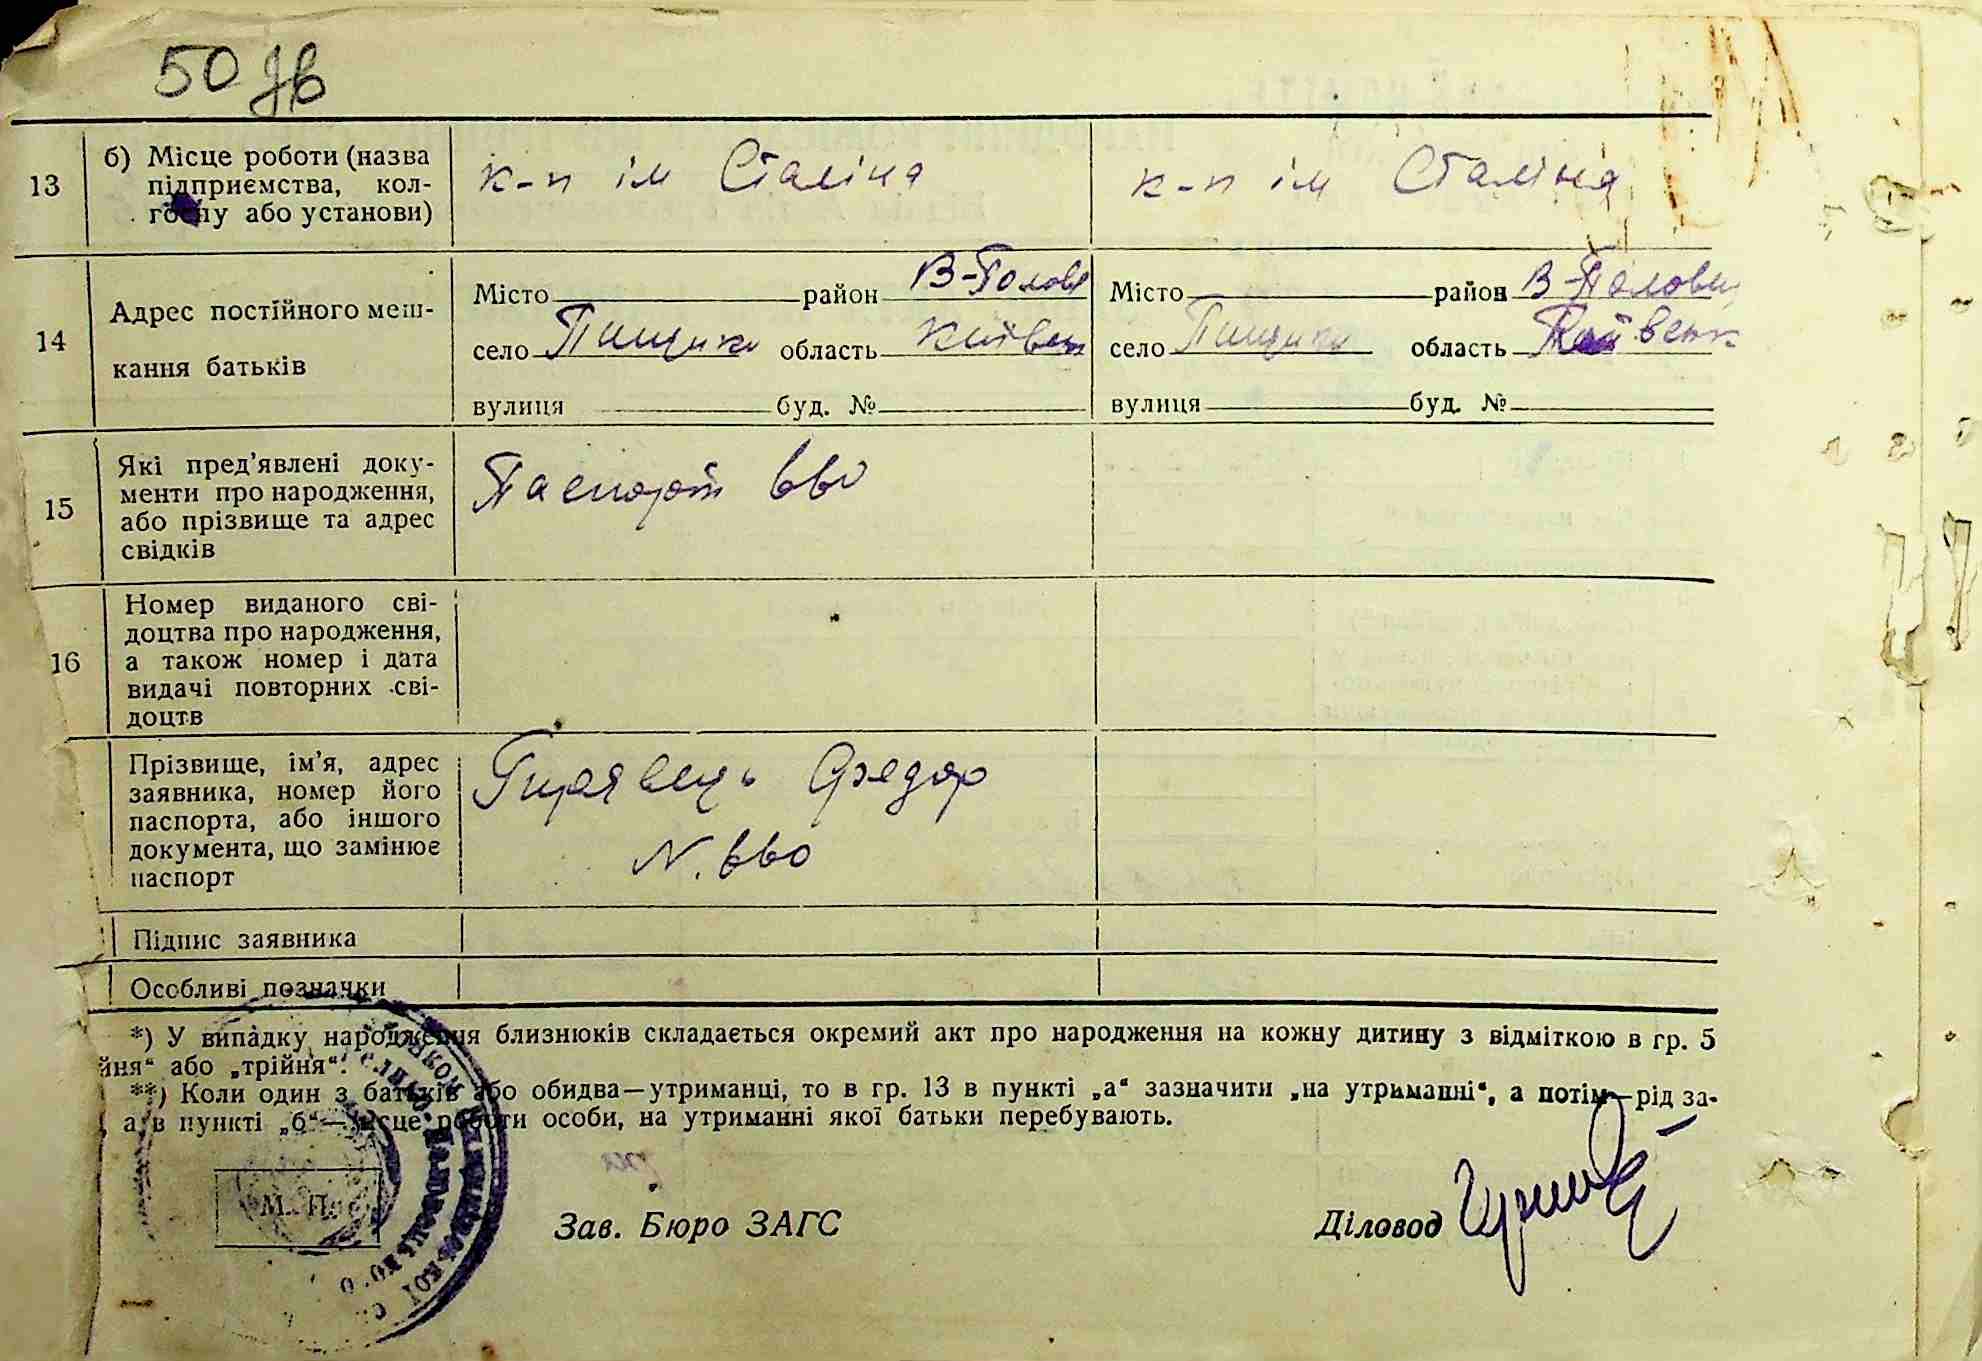 50 зв
13 б) Місце роботи (назва
підприємства, кол-
госпу або установи)
к-п ім Сталіна к-п ім Сталіна
14 Адрес постійного меш-
кання батьків
Місто район В-Полов Місто район В-Полови
село Пищики область Київськ село Пищики область
вулиця буд. № вулиця буд. №
15 Які пред’явлені доку-
менти про народження,
або прізвище та адрес
свідків
Паспорт
16 Номер виданого сві-
доцтва про народження,
а також номер і дата
видачі повторних сві-
доцтв
Прізвище, ім’я, адрес
заявника, номер його
паспорта, або іншого
документа, що замінює
паспорт
Федор
N.
Підпис заявника
Особливі позначки
*) У випадку народження близнюків складається окремий акт про народження на кожну дитину з відміткою в гр. 5
йня“ або „трійня“.
**) Коли один з батьків або обидва—утриманці, то в гр. 13 в пункті „а“ зазначити „на утриманні“, а потім—рід за-
, а в пункті „б“—місце роботи особи, на утриманні якої батьки перебувають.
М. П.
Зав. Бюро ЗАГС Діловод